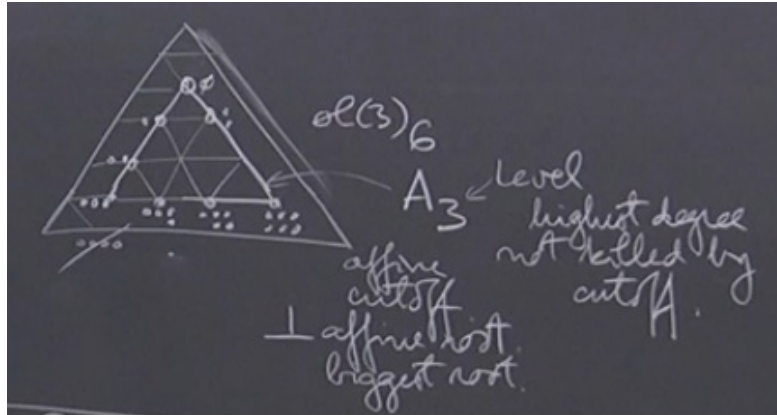 ∅
sl(3)₆
A₃ ← Level
highest degree
not killed by
cutoff.
affine
cutoff
⊥ affine root.
biggest root.